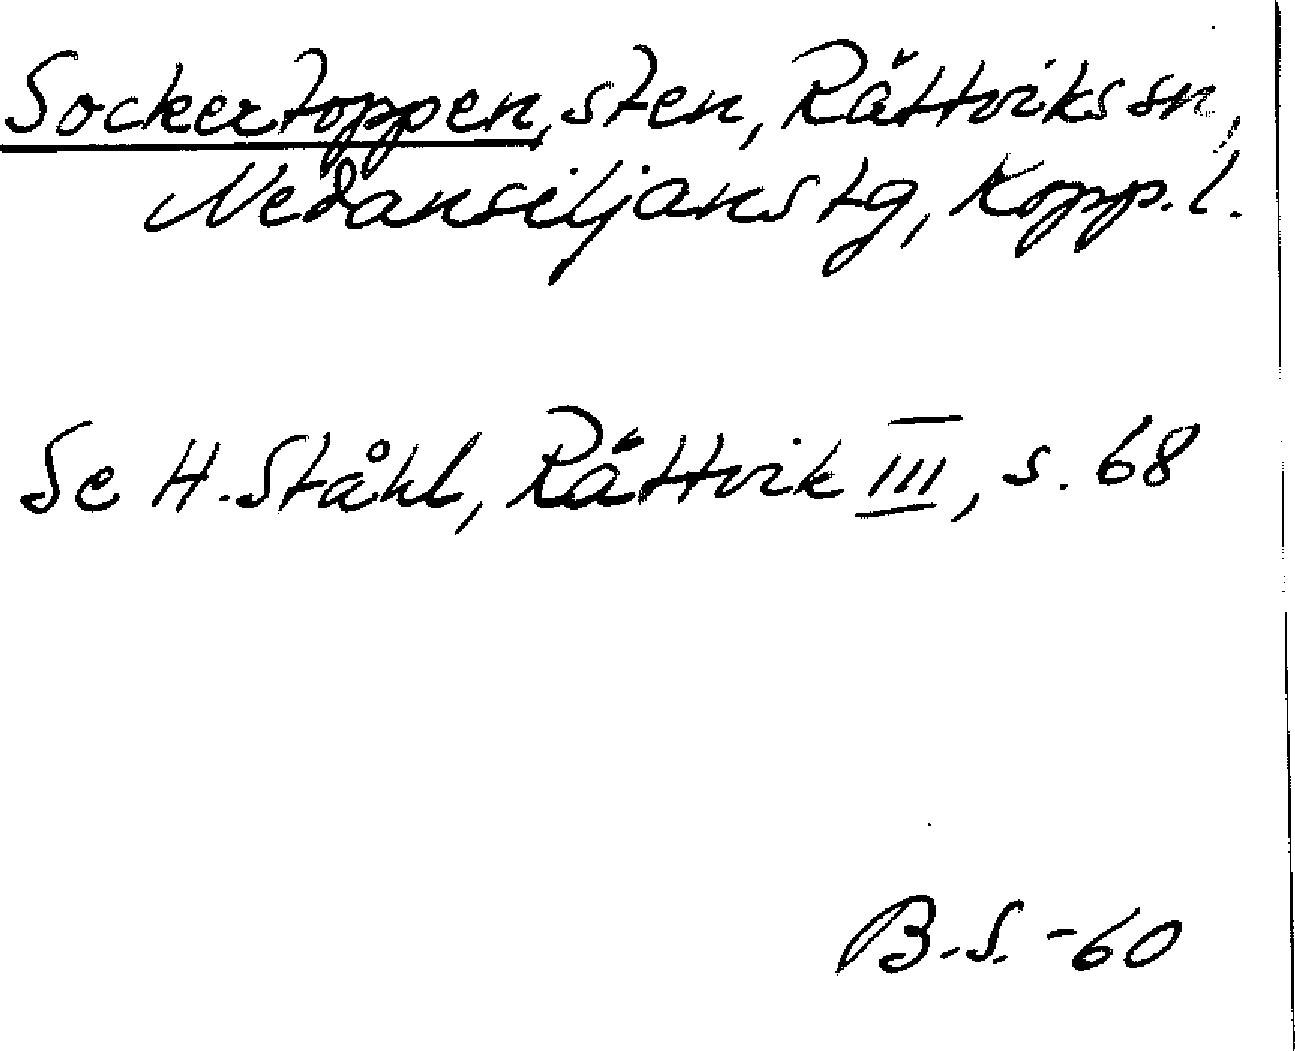 Sockertoppen, sten, Rättviks sn,
Nedansiljans tg, Kopp. l.
Se H. Ståhl, Rättvik III, s. 68
B.S. -60